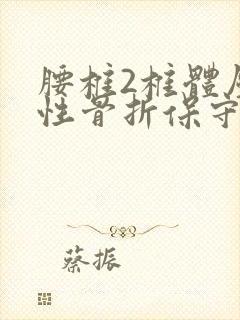 腰椎2椎體
性骨折保守
蔡振